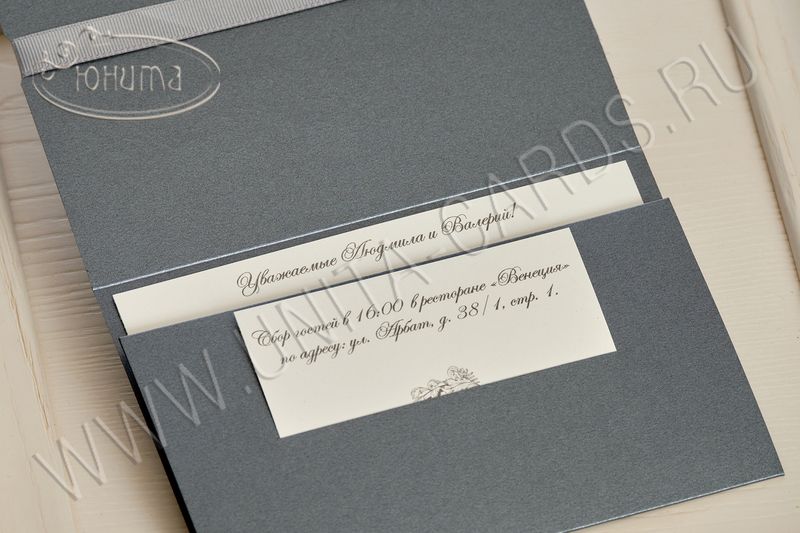 Юнита
Уважаемые Людмила и Валерий!
Сбор гостей в 16:00 в ресторане «Венеция»
по адресу: ул. Арбат, д. 38/1, стр. 1.
WWW.UNITA-CARDS.RU